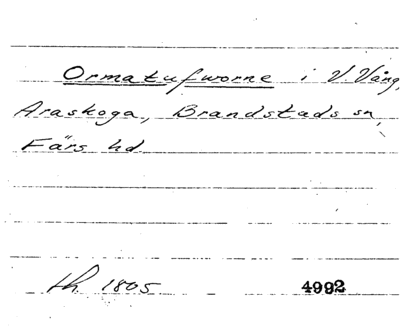 Ormatufworne i V Vång,
Araskoga, Brandstads sn,
Färs hd
th. 1805 4992